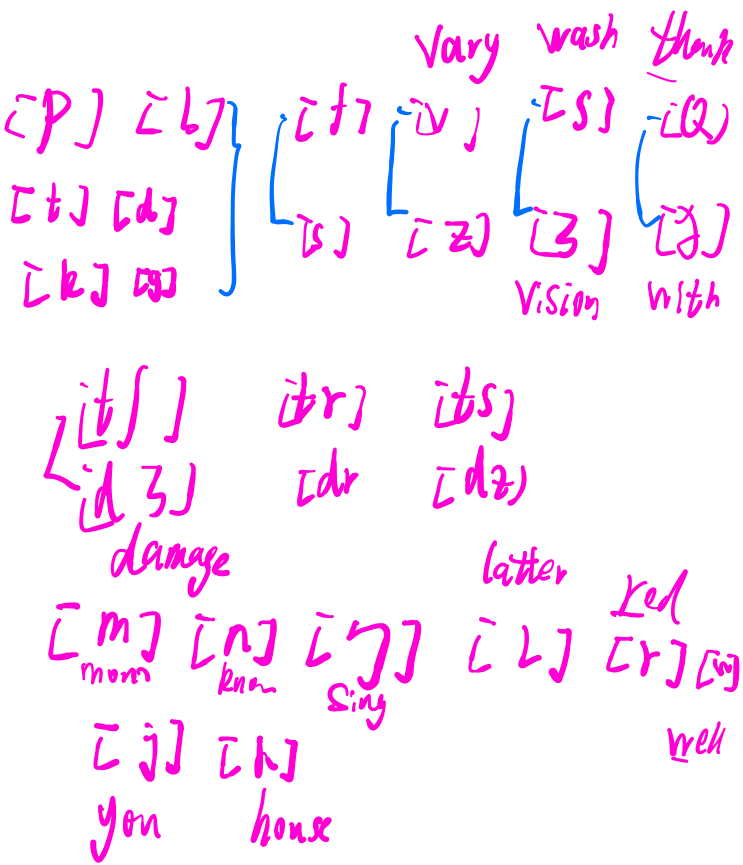 vary wash thank
[p] [b] [f] [v] [ʃ] [θ]
[t] [d] [s] [z] [ʒ] [ð]
[k] [g]
vision with
[tʃ] [tr] [ts]
[dʒ] [dr [dz]
damage latter red
[m] [n] [ŋ] [L] [r] [w]
mom know sing
well
[j] [h]
you house